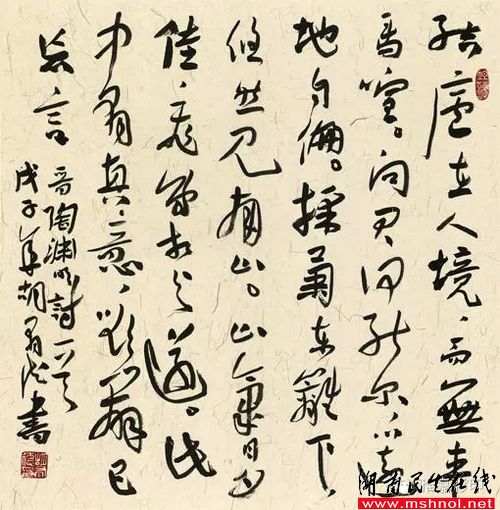 结廬在人境，而無車
馬喧。问君何能尔，心遠
地自偏。採菊东籬下，
悠然见南山。山氣日夕
佳，飛鸟相与還。此
中有真意，欲辩已
忘言
晋陶渊明詩一首
戊子年胡書
湖南民生在线
www.mshnol.net